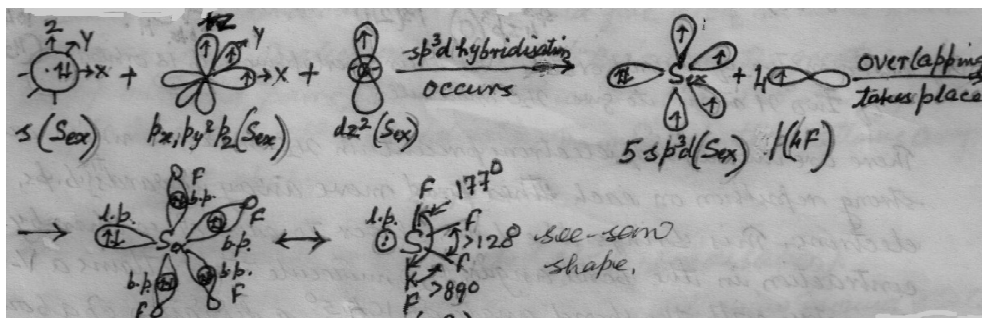 Z Y X + Z Y X + sp³d hybridisation occurs Sex + 4 overlapping takes place
s(Sex) px, py & pz (Sex) dz² (Sex) 5 sp³d (Sex) p(4F)
l.p. F b.p. Sex F b.p. b.p. F b.p. F
l.p. S F 177° F >128° F >89° F see-saw shape.